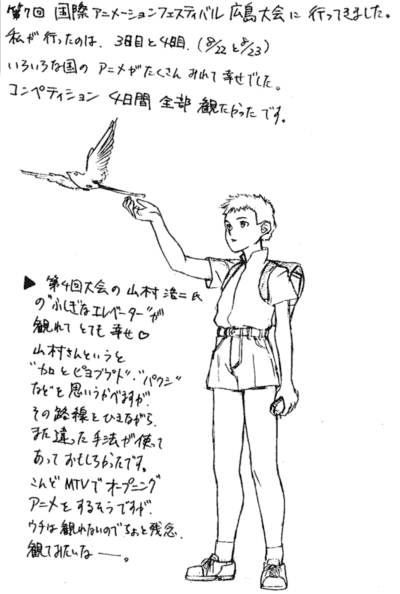 第7回 国際アニメーションフェスティバル 広島大会に行ってきました。
私が行ったのは、3日目と4日目.(8/22と8/23)
いろいろな国の アニメがたくさん みれて 幸せでした。
コンペティション 4日間 全部 観たかったです。
▶ 第4回大会の 山村浩二氏
の"ふしぎなエレベーター"が
観れて とても 幸せ♡
山村さんというと
"カロとピヨブプト"・"パクシ"
などを 思いうかべますが.
その路線とひきながら.
また違った手法が使って
あっておもしろかったです。
こんど MTVで オープニング
アニメをするそうですが.
ウチは観れないのでちょと残念.
観てみたいな――。